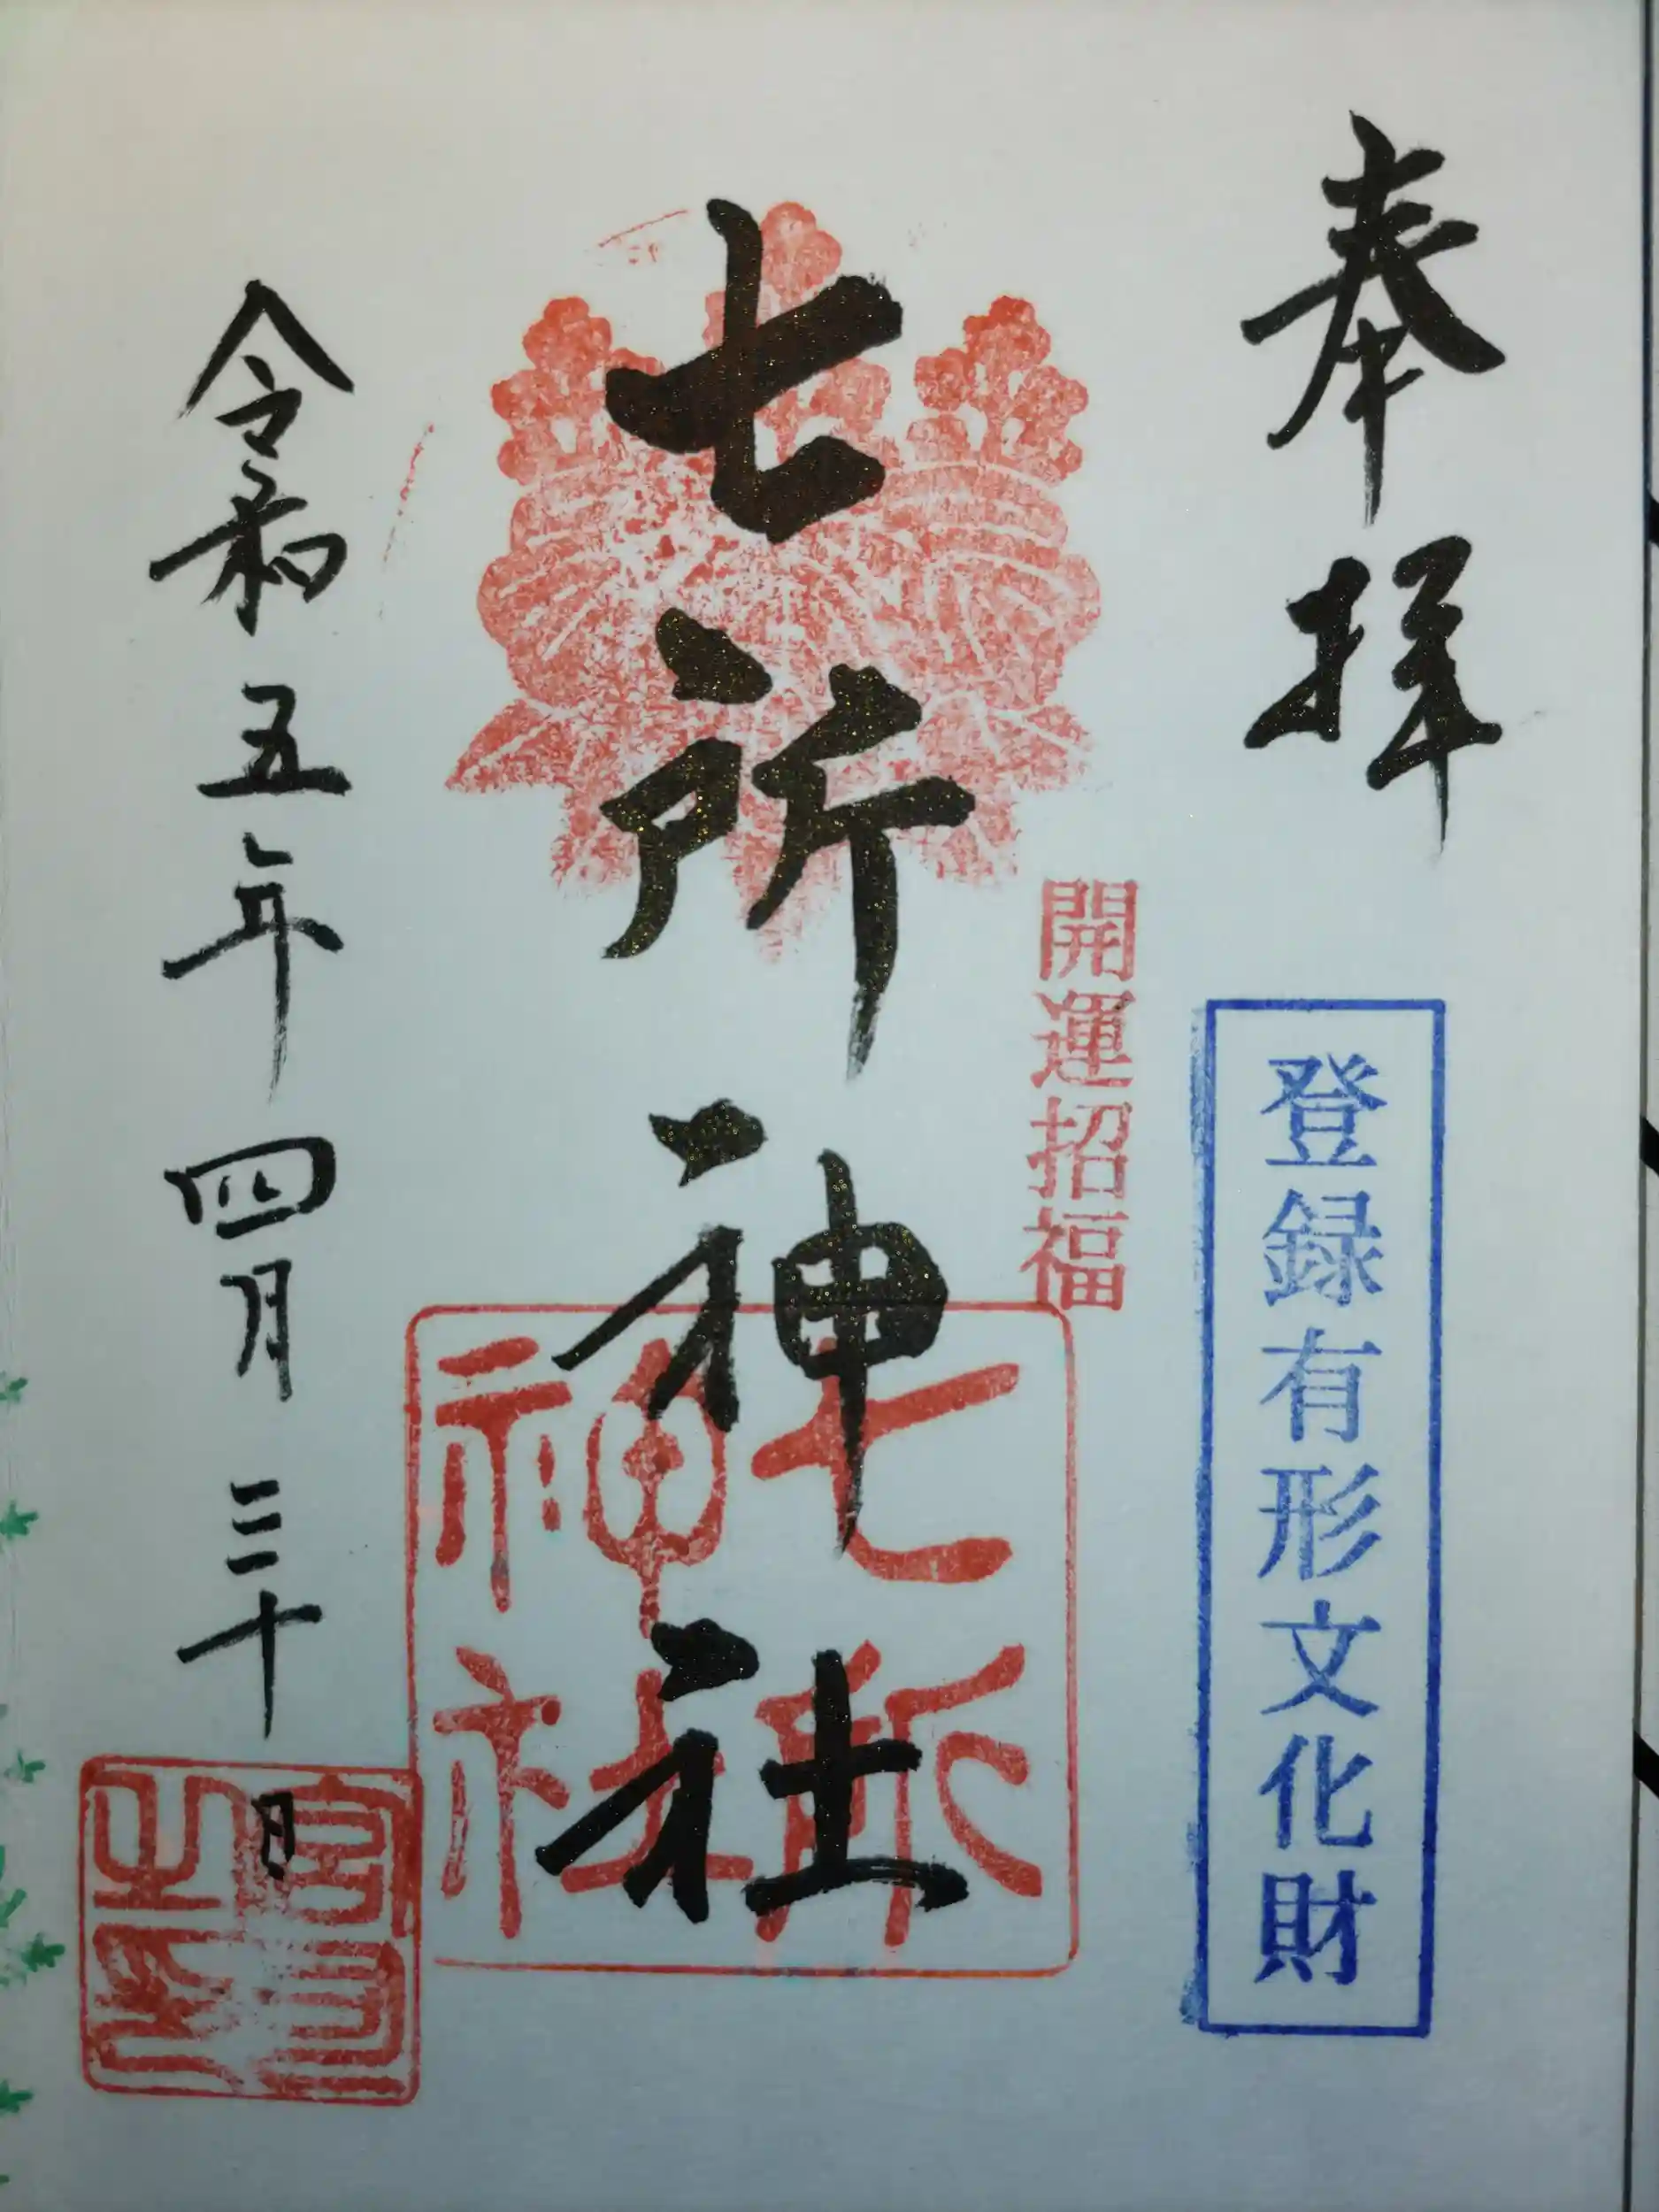 奉拝
登録有形文化財
開運招福
七所神社
七所神社
令和五年四月三十日
宮司之印